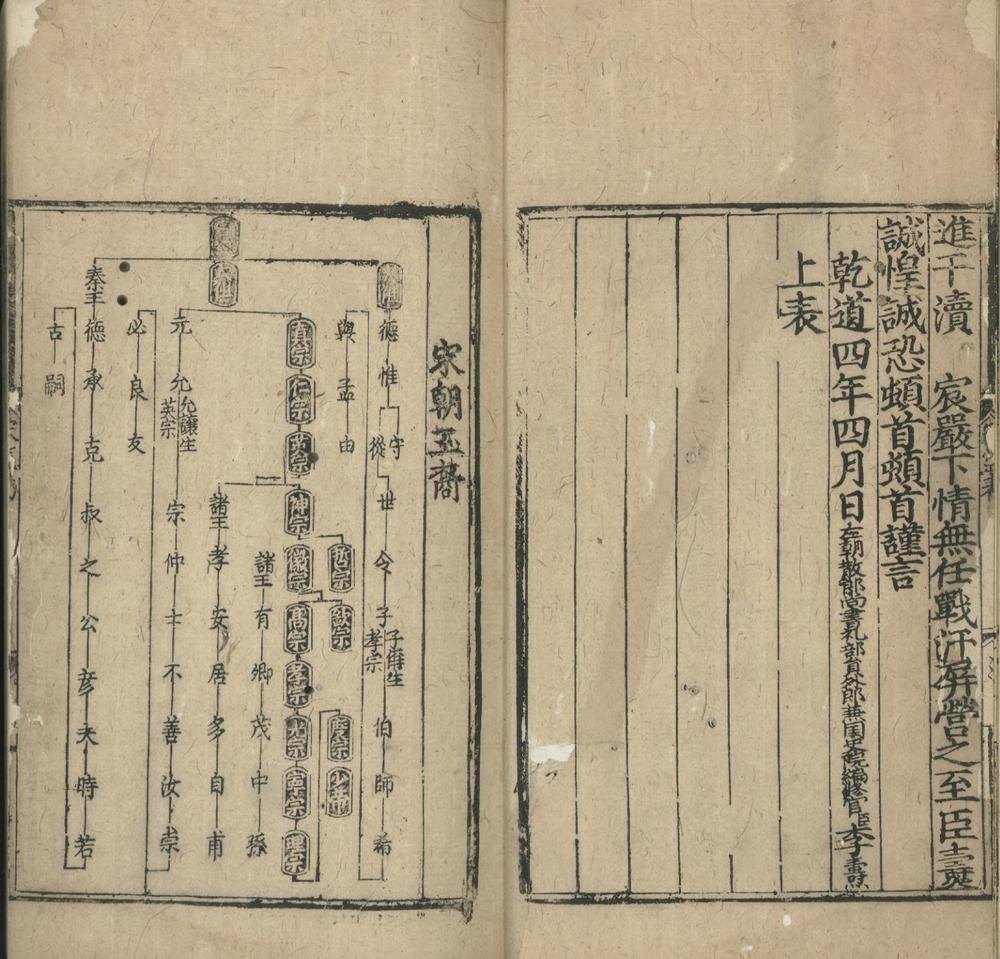 進干瀆　宸嚴下情無任戰汗屏營之至臣燾
誠惶誠恐頓首頓首謹言
乾道四年四月日左朝散郎尚書礼部員外郎兼国史院編修官臣李燾
上表
宋朝玉裔
太祖
德惟守從世令子子偁生孝宗伯師希
與孟由
哲宗
欽宗
度宗
少帝
真宗
仁宗
英宗
神宗
徽宗
高宗
孝宗
光宗
寧宗
理宗
諸王有卿茂中孫
太宗
諸王孝安居多自甫
元允允讓生英宗宗仲士不善汝崇
必良友
秦王德承克叔之公彦夫時若
古嗣